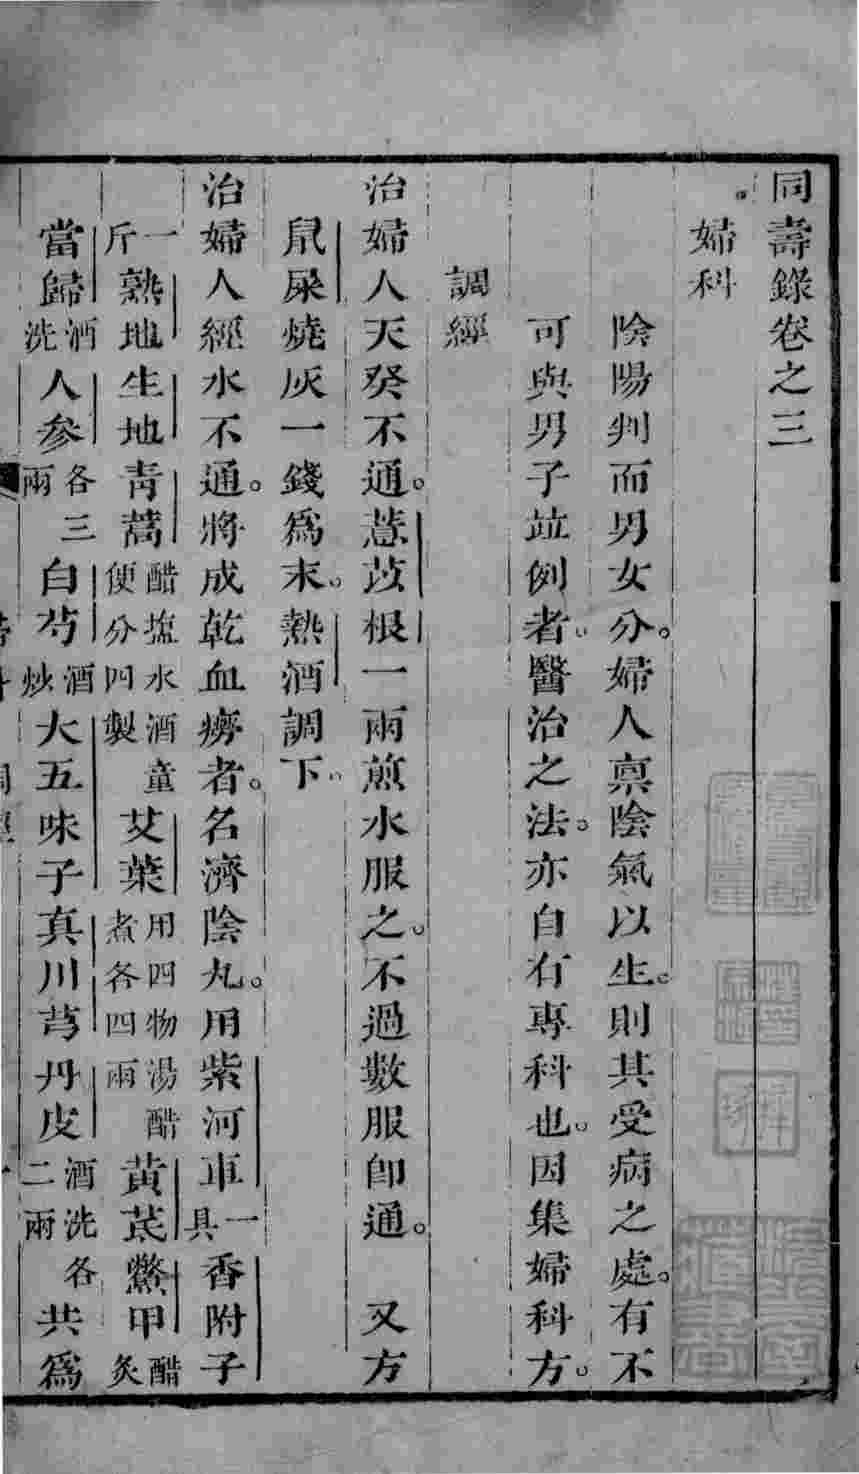 同壽錄卷之三
婦科
陰陽判而男女分。婦人禀陰氣以生。則其受病之處。有不
可與男子竝例者。醫治之法。亦自有專科也。因集婦科方。
調經
治婦人天癸不通。薏苡根一兩煎水服之。不過數服卽通。　又方
鼠屎燒灰一錢爲末。熱酒調下。
治婦人經水不通。將成乾血癆者。名濟陰丸。用紫河車一具香附子
一斤熟地生地青蒿醋塩水酒童便分四製艾葉用四物湯醋煮各四兩黃芪鱉甲醋炙
當歸酒洗人参各三兩白芍酒炒大五味子真川芎丹皮酒洗各二兩共爲